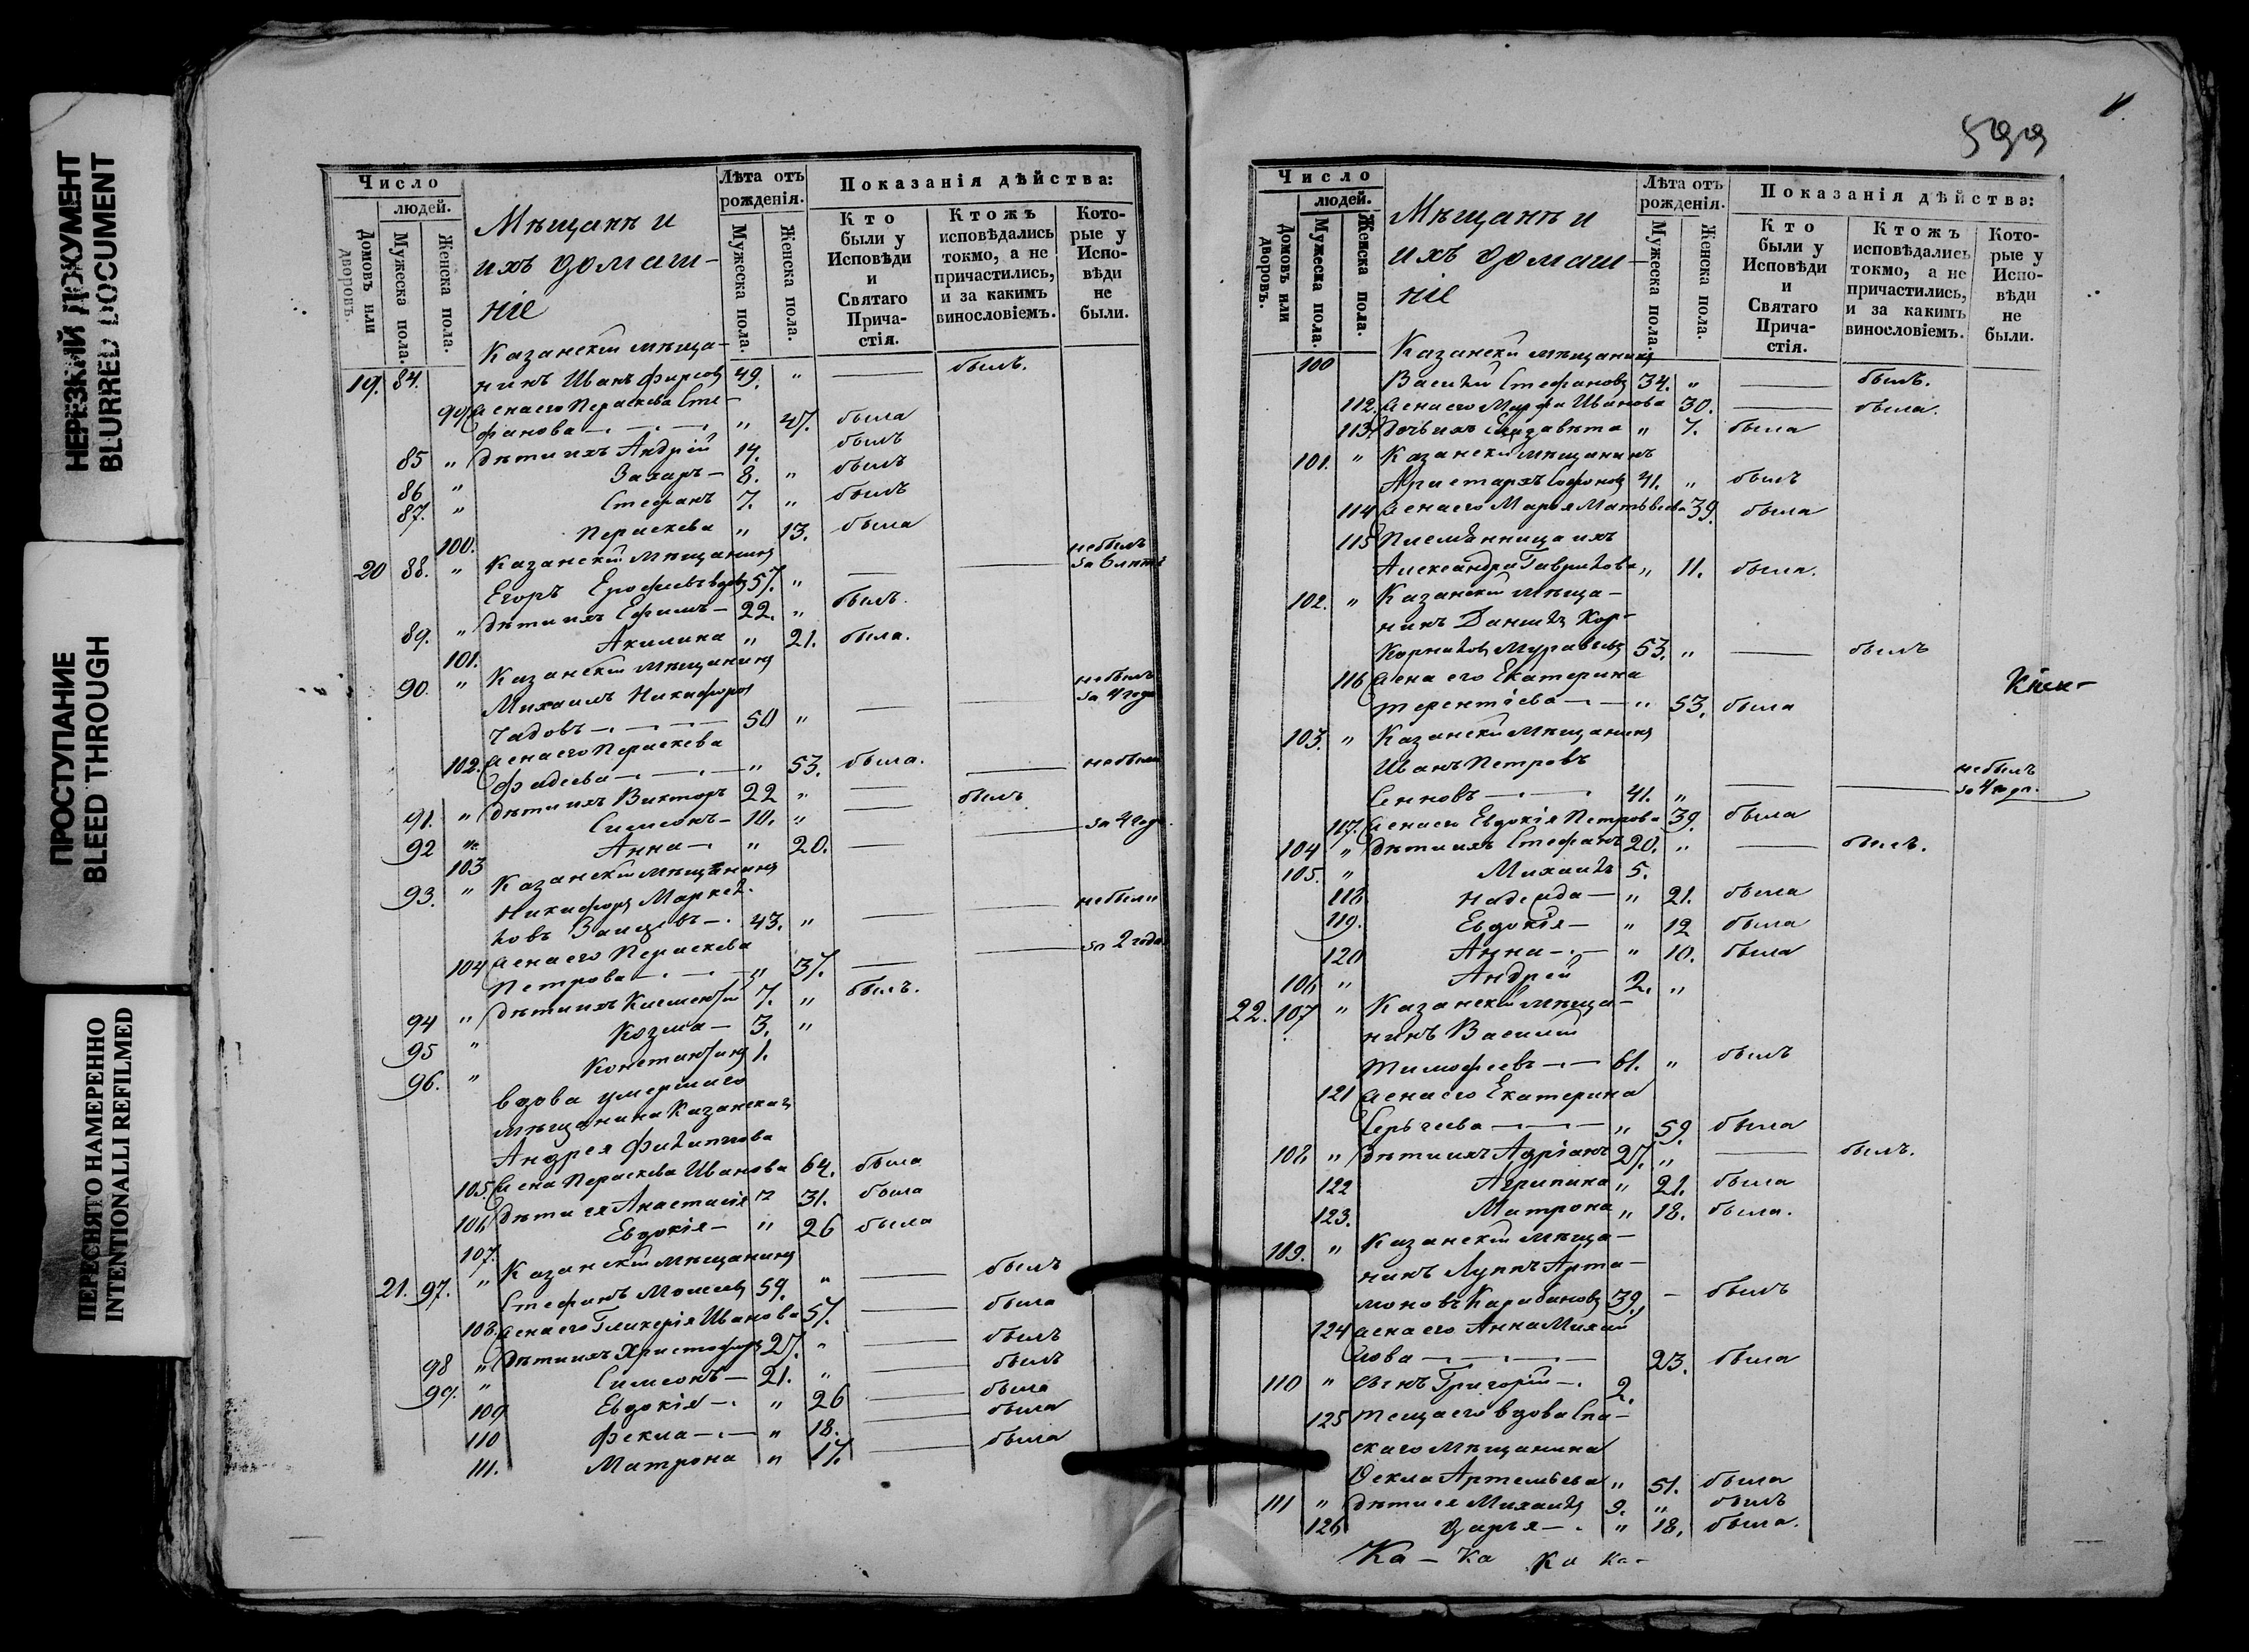 НЕРЕЗКИЙ ДОКУМЕНТ
BLURRED DOCUMENT
ПРОСТУПАНИЕ
BLEED THROUGH
ПЕРЕСНЯТО НАМЕРЕННО
INTENTIONALLI REFILMED
Число
людей.
Домовъ или дворовъ.
Мужеска пола.
Женска пола.
Мѣщанъ и
ихъ домаш-
ніе
Лѣта отъ рожденія.
Мужеска пола.
Женска пола.
Показанія дѣйства:
Кто были у Исповѣди и Святаго Прича-стія.
Ктожъ исповѣдались токмо, а не причастились, и за какимъ винословіемъ.
Кото-рые у Испо-вѣди не были.
Казанскій мѣща-
19. 84. нинъ Иванъ Фирсовъ 49. " — былъ.
99 Жена его Параскева Сте-
фанова " 47. была
85 " Дѣти ихъ Андрей 14. былъ
86 " Захаръ 8. " былъ
87. " Стефанъ 7. " былъ
100. Параскева " 13. была
20 88. " Казанскій мѣщанинъ небылъ
Егоръ Ерофеевъ вдовъ 57. " — — за 6 лѣтъ
89. " Дѣти ихъ Ефимъ — 22. " былъ.
101. Акилина " 21. была.
90. " Казанскій мѣщанинъ небылъ
Михаилъ Никифоровъ за 4 года
Чадовъ 50 " — —
102. Жена его Параскева
Фадеева " 53. была.
91. " Дѣти ихъ Викторъ 22 " — — небылъ
92 " Симеонъ — 10. " — былъ
103 Анна — " 20. — — за 4 года
93. " Казанскій мѣщанинъ
Никифоръ Маркел-
ловъ Зайцевъ — 43. " — — небылъ
104 Жена его Параскева
Петрова " 37. — — за 2 года
94 " Дѣти ихъ Климентій 7. " былъ.
95 " Козма — 3. "
96. " Константинъ 1.
Вдова умершаго
мѣщанина Казанскаго
Андрея Филиппова
105 Жена Параскева Иванова 64. была
106 Дѣти ея Анастасія " 31. была
107. Евдокія — " 26 была
21. 97. " Казанскій мѣщанинъ
Стефанъ Моисеевъ 59. " — былъ
108. Жена его Гликерія Иванова 57. — была
98 " Дѣти ихъ Христофоръ 27. " — былъ
99. " Симеонъ — 21. " — былъ
109 Евдокія — " 26 — была
110 Фекла — " 18. — была
111. Матрона " 17. — была
599
Число
людей.
Домовъ или дворовъ.
Мужеска пола.
Женска пола.
Мѣщанъ и
ихъ домаш-
ніе
Лѣта отъ рожденія.
Мужеска пола.
Женска пола.
Показанія дѣйства:
Кто были у Исповѣди и Святаго Прича-стія.
Ктожъ исповѣдались токмо, а не причастились, и за какимъ винословіемъ.
Кото-рые у Испо-вѣди не были.
100 Казанскій мѣщанинъ
Василій Стефановъ 34. " — былъ.
112. Жена его Марфа Иванова 30. — была.
113. Дочь ихъ Елизавета " 7. была
101. " Казанскій мѣщанинъ
Аристархъ Софоновъ 41. " былъ
114 Жена его Марья Матвѣева 39. была
115 Племянница ихъ
Александра Гаврилова " 11. была.
102. " Казанскій мѣща-
нинъ Данилъ Кор-
Корниловъ Муравьевъ 53. " — былъ
116 Жена его Екатерина
Терентіева " 53. была
103. " Казанскій мѣщанинъ
Иванъ Петровъ небылъ
Сенновъ 41. " — — за 4 года.
117. Жена его Евдокія Петрова 39. была
104 " Дѣти ихъ Стефанъ 20. " — былъ.
105. " Михаилъ 5.
118. Надежда — " 21. была
119. Евдокія — " 12 была
120 Анна — " 10. была
106 " Андрей 2. "
22. 107 " Казанскій мѣща-
нинъ Василій
Тимофеевъ 61. " былъ
121 Жена его Екатерина
Сергѣева " 59. была
108. " Дѣти ихъ Адріанъ 27. " — былъ.
122 Агрипина " 21. была
123. Матрона " 18. была.
109. " Казанскій мѣща-
нинъ Луппъ Арта-
моновъ Карабановъ 39. — былъ
124 Жена его Анна Михай
лова 23. была
110 " Сынъ Григорій — 2.
125 Теща его вдова Спа-
скаго мѣщанина
Фекла Артемьева " 51. была
111 " Дѣти ея Михаилъ 9. " былъ
126 Дарья — " 18. была.
Ка — Ка Ка Ка-